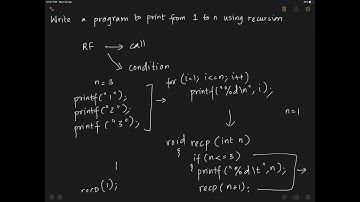 Write a program to print from 1 to n using recursion
RF → call
→ condition
n = 3
printf("1");
printf("2");
printf("3");
for (i=1; i<=n; i++)
printf("%d\n", i);
n=1
void recp (int n)
{ if (n<=3)
{ printf("%d\t", n);
recp(n+1);
1
recp(1);